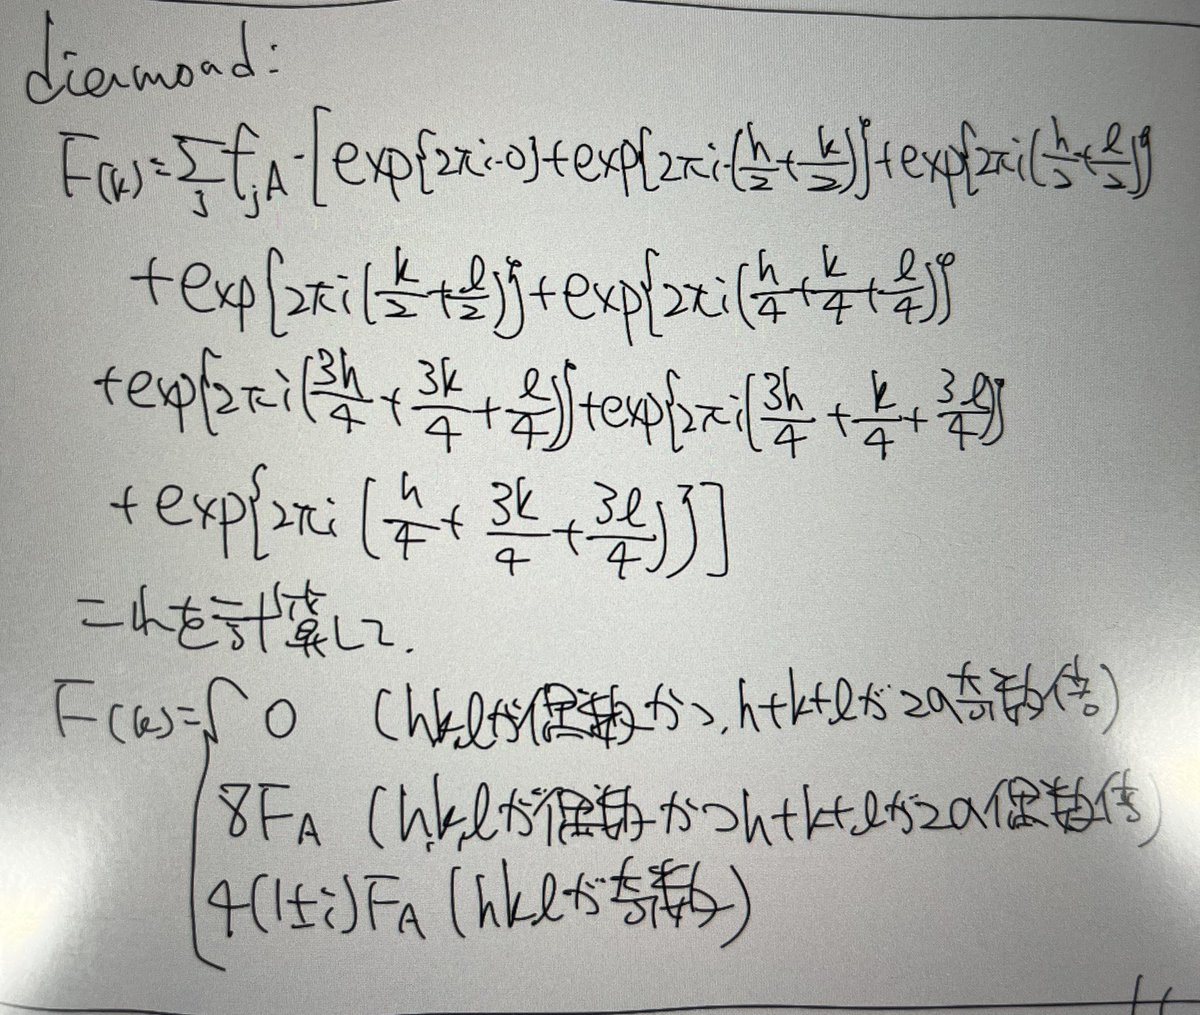 diamond:
F(k)=Σ_j f_jA・[exp{2πi・0}+exp{2πi・(h/2+k/2)}+exp{2πi(h/2+l/2)}
+exp{2πi(k/2+l/2)}+exp{2πi(h/4+k/4+l/4)}
+exp{2πi(3h/4+3k/4+l/4)}+exp{2πi(3h/4+k/4+3l/4)}
+exp{2πi(h/4+3k/4+3l/4)}]
これを計算して.
F(k)={ 0 (h,k,lが偶数かつ,h+k+lが2の奇数倍)
8F_A (h,k,lが偶数かつh+k+lが2の偶数倍)
4(1±i)F_A (hklが奇数)